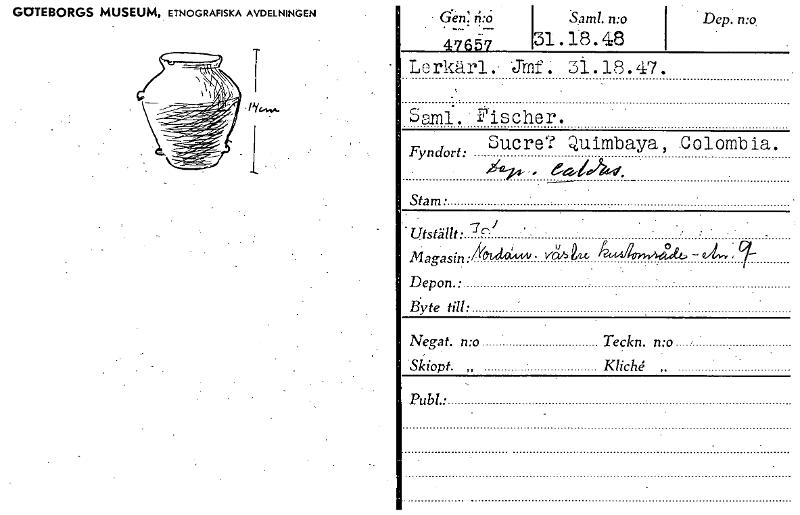 GÖTEBORGS MUSEUM, ETNOGRAFISKA AVDELNINGEN
14cm
Gen. n:o
47657
Saml. n:o
31.18.48
Dep. n:o
Lerkärl. Jmf. 31.18.47.
Saml. Fischer.
Fyndort: Sucre? Quimbaya, Colombia.
Dep. Caldas.
Stam:
Utställt:
Magasin: Nordam. västre kustområde - 9
Depon.:
Byte till:
Negat. n:o
Teckn. n:o
Skiopt. „
Kliché „
Publ.: